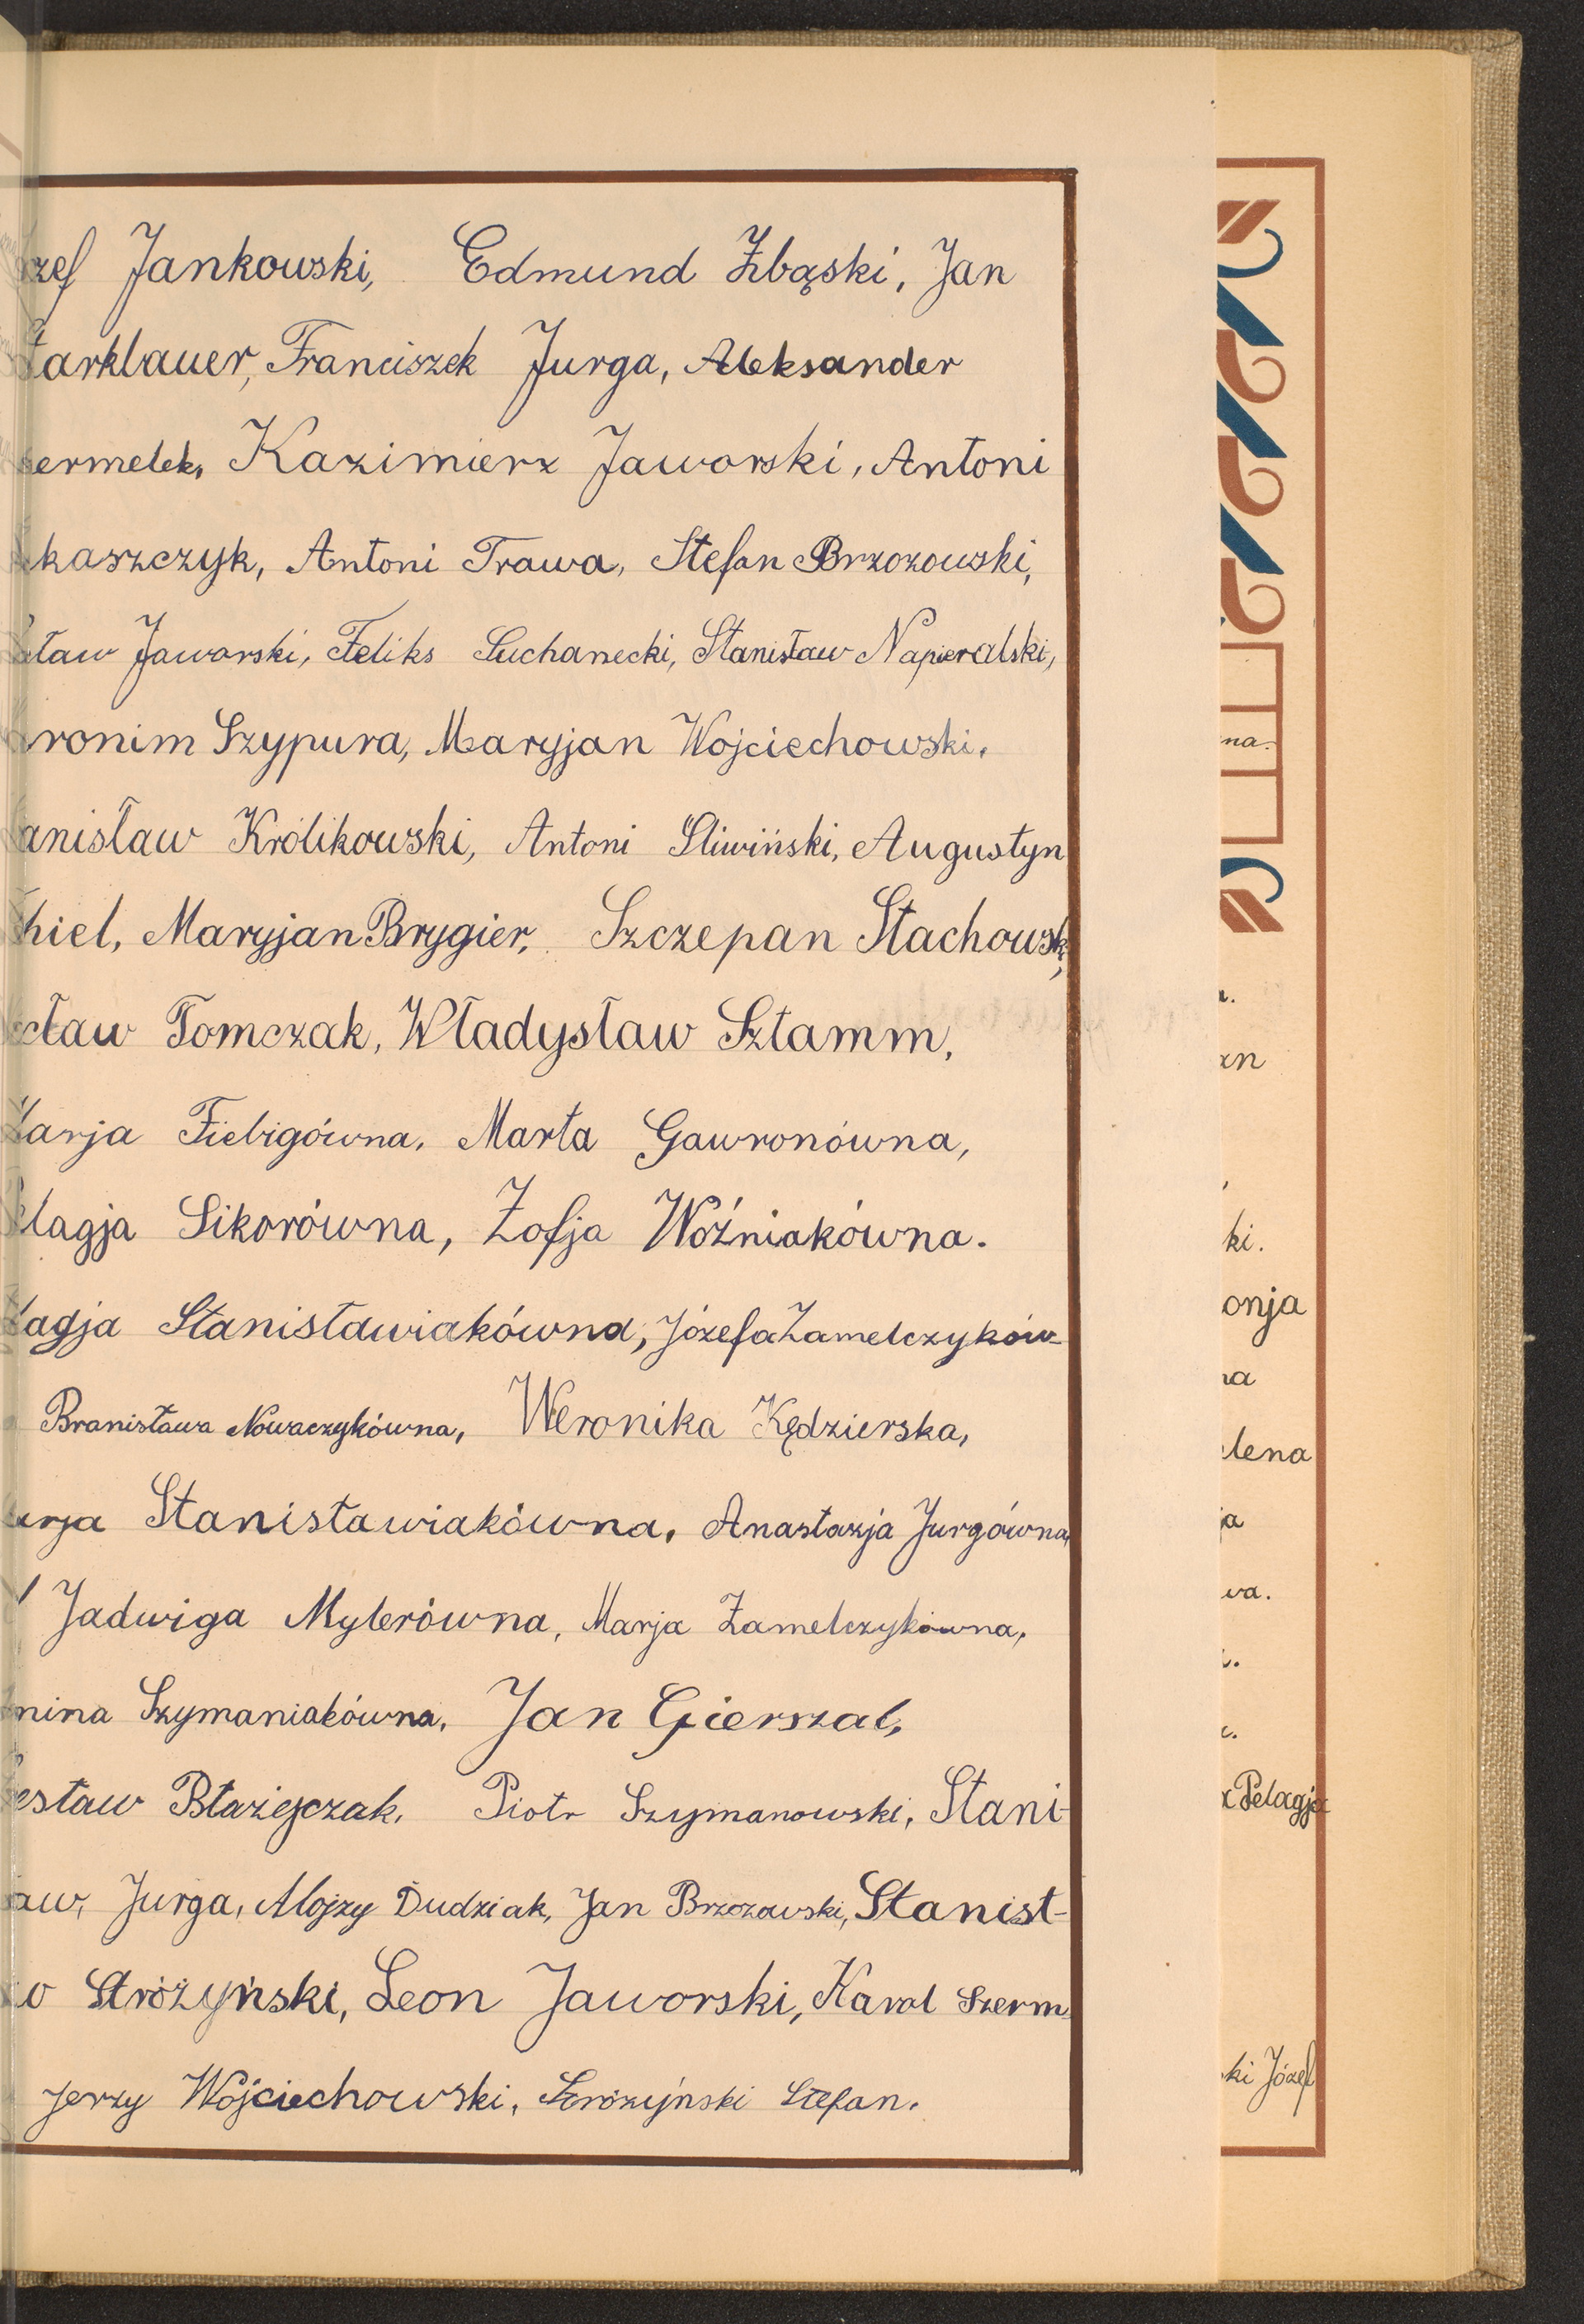 zef Jankowski, Edmund Zbąski, Jan
arklauer, Franciszek Jurga, Aleksander
ermelek, Kazimierz Jaworski, Antoni
kaszczyk, Antoni Trawa, Stefan Brzozowski,
sław Jaworski, Feliks Suchanecki, Stanisław Napieralski,
ronim Szypura, Maryjan Wojciechowski,
anisław Królikowski, Antoni Śliwiński, Augustyn
hiel, Maryjan Brygier, Szczepan Stachowski,
cław Tomczak, Władysław Sztamm,
arja Fiebigówna, Marta Gawronówna,
lagja Sikorówna, Zofja Woźniakówna.
lagja Stanisławiakówna, Józefa Zamelczyków-
Branisława Nowaczykówna, Weronika Kędzierska,
arja Stanisławiakówna, Anastazja Jurgówna,
Jadwiga Mylerówna, Marja Zamelczykówna,
nina Szymaniakówna, Jan Gierszal,
esław Błażejczak, Piotr Szymanowski, Stani-
aw, Jurga, Alojzy Dudziak, Jan Brzozowski, Stanisł-
w Stróżyński, Leon Jaworski, Karol Szerm
Jerzy Wojciechowski, Stróżyński Stefan.
na.
zn
ki.
onja
na
lena
ja
wa.
Pelagja
ki Józef